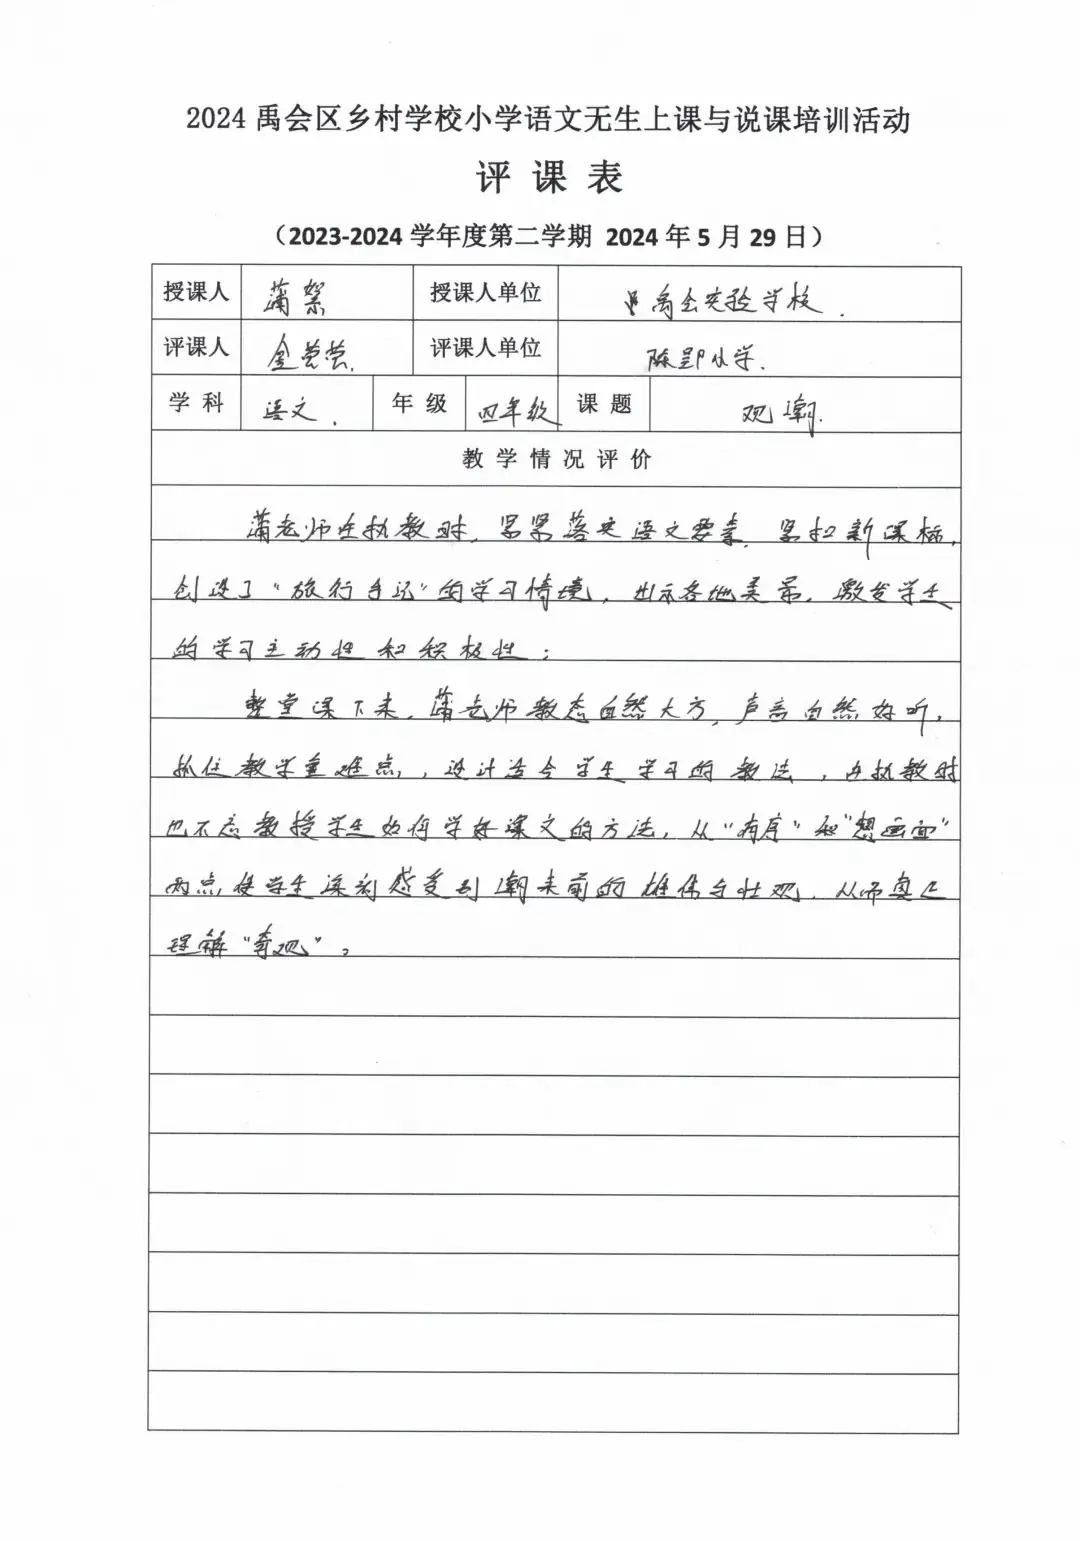 2024 禹会区乡村学校小学语文无生上课与说课培训活动
评 课 表
（2023-2024 学年度第二学期 2024 年 5 月 29 日）
授课人 蒲絮 授课人单位 禹会实验学校.
评课人 金芸芸. 评课人单位 陈郢小学.
学 科 语文. 年 级 四年级 课 题 观潮.
教 学 情 况 评 价
蒲老师在执教时，紧紧落实语文要素，紧扣新课标，
创设了“旅行手记”的学习情境，出示各地美景，激发学生
的学习主动性和积极性；
整堂课下来，蒲老师教态自然大方，声音自然好听，
抓住教学重难点，，设计适合学生学习的教法，在执教时
也不忘教授学生如何学好课文的方法，从“有序”和“想画面”
两点使学生深刻感受到潮来前的雄伟与壮观，从而真正
理解“奇观”。